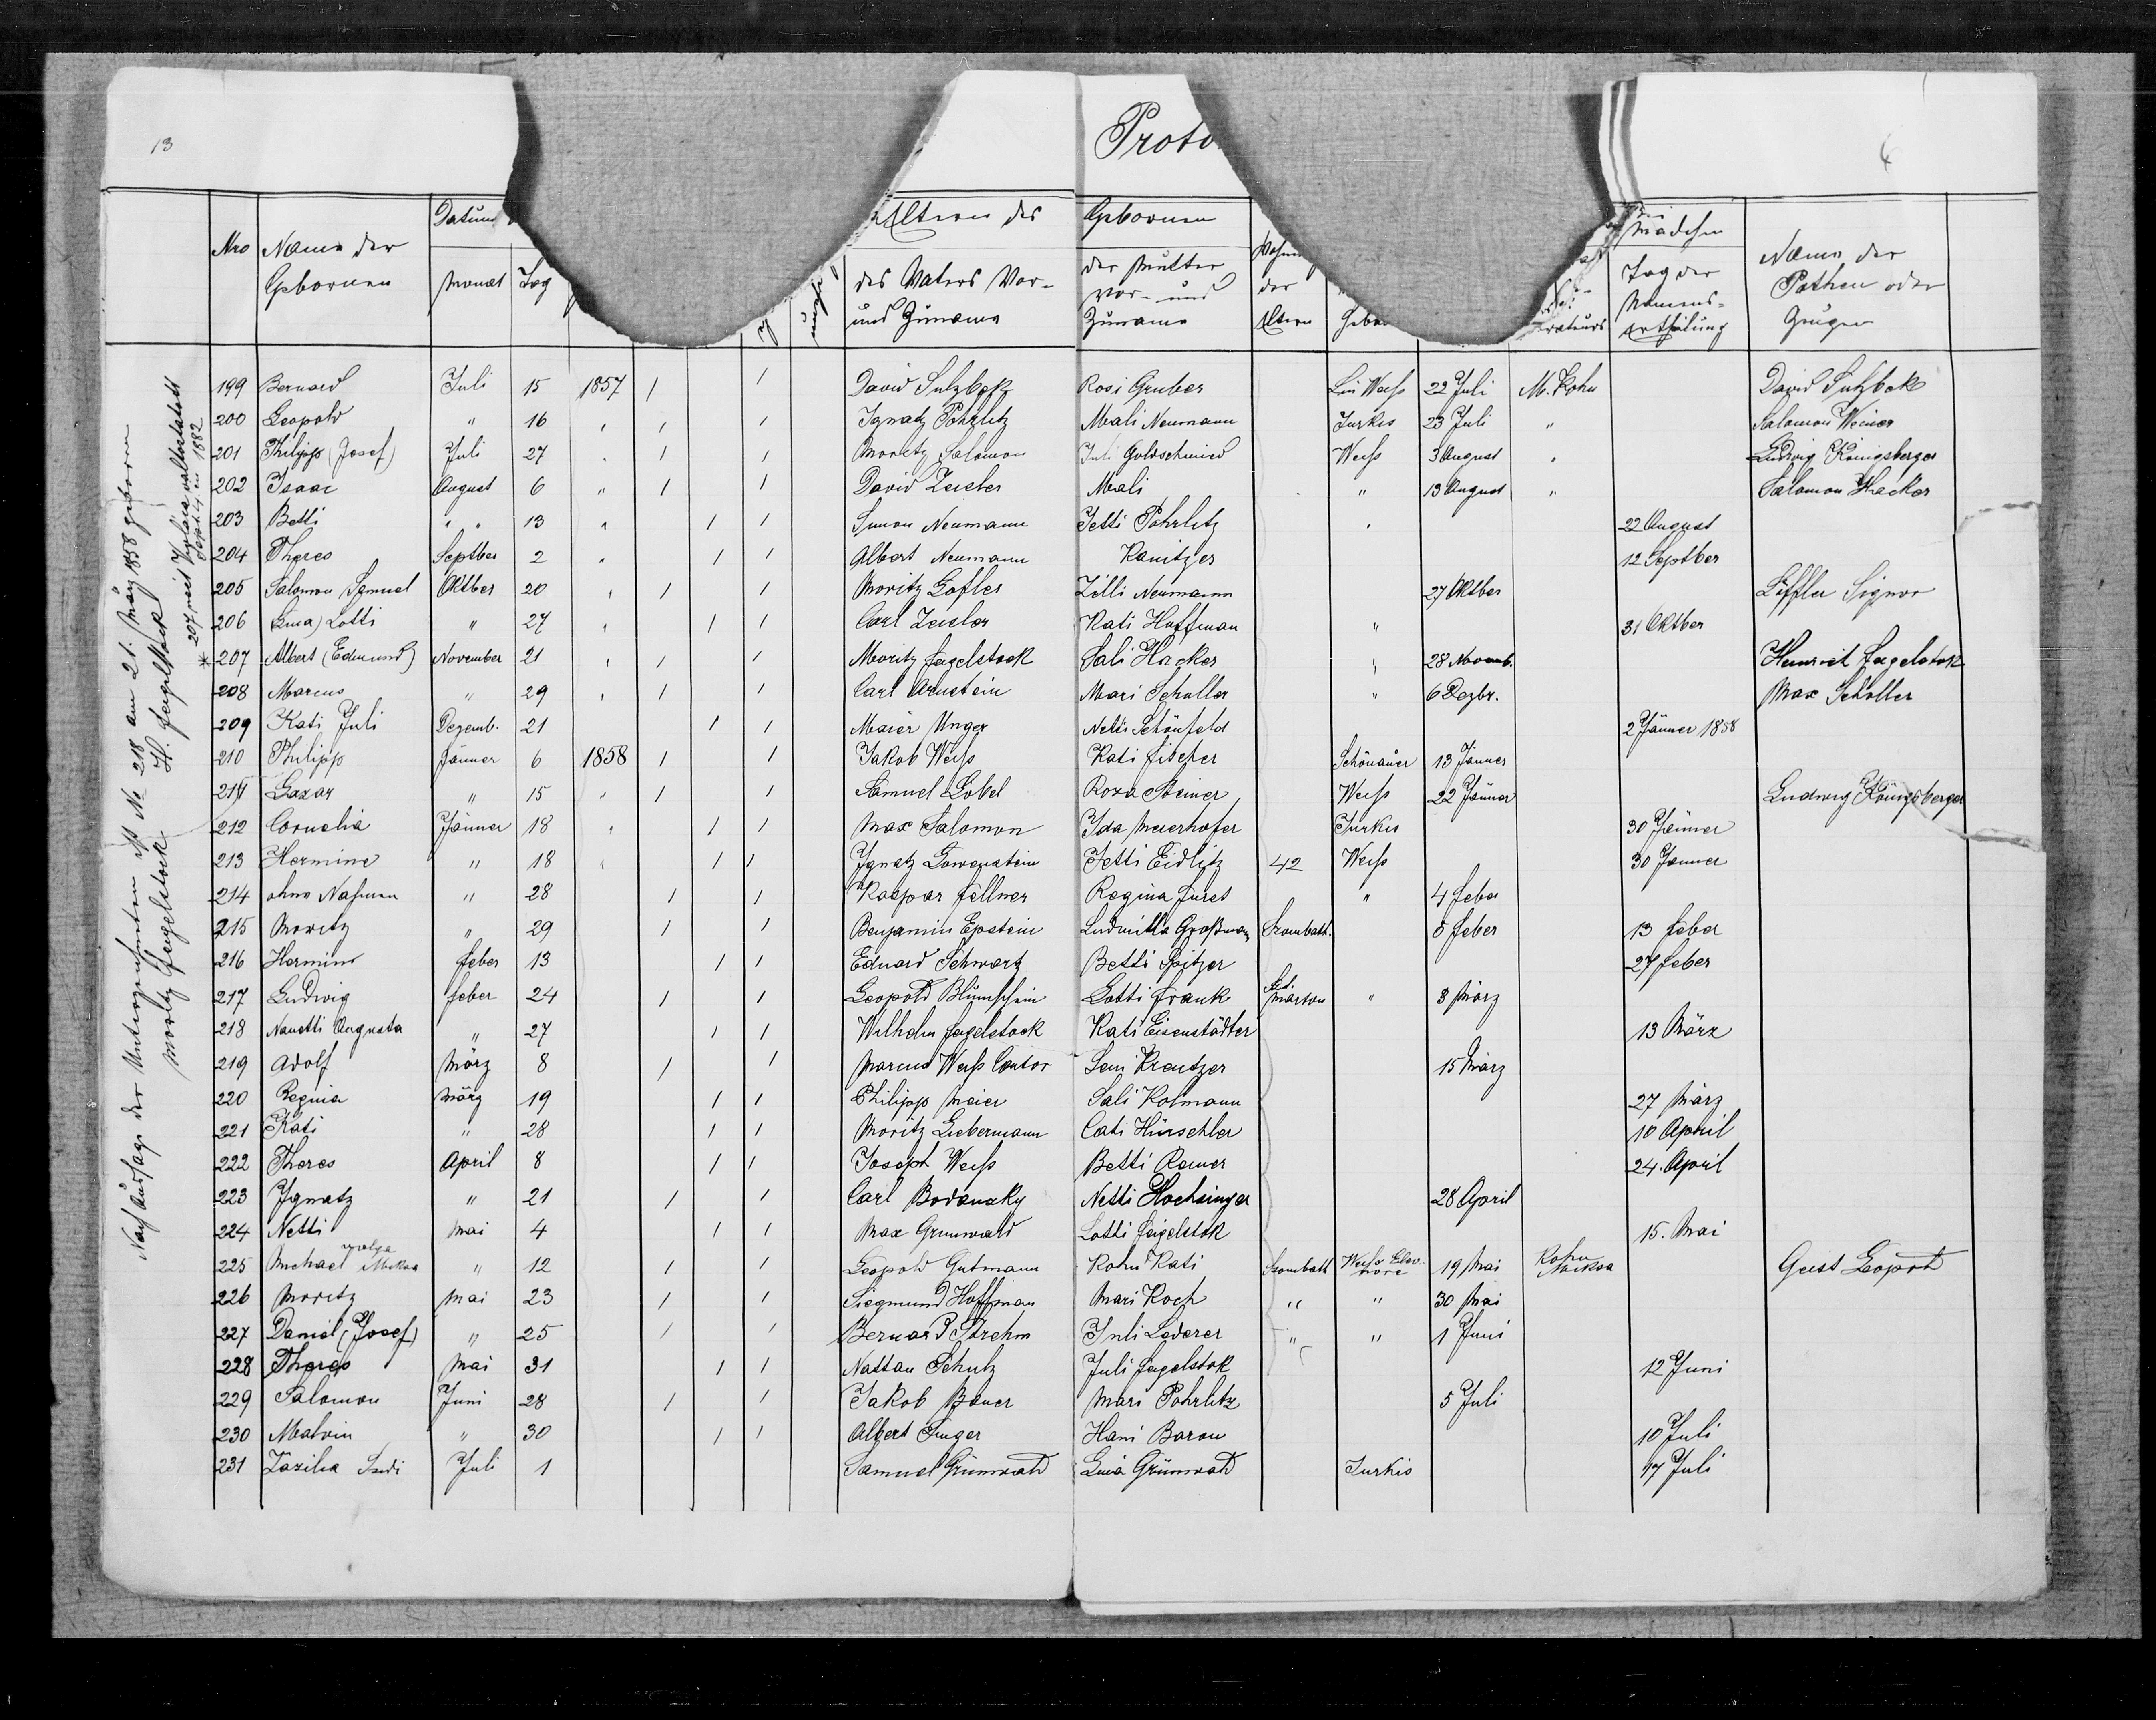 13
Proto
6
Datum
Altern des
Gebornen
Mädchen
Nro
Name der
Gebornen
Monat
Tag
des Vaters Vor-
und Zuname
der Mutter
Vor- und
Zuname
der
Altern
Tag der
Namens-
ertheilung
Name der
Pathen oder
Zeugen
199 Bernard Juli 15 1857 / / David Sulzbek Rosi Gruber Weiss 22 Juli M. Kohn David Sulzbek
200 Leopold " 16 " / / Ignatz Pohrlitz Mali Neumann Turkis 23 Juli " Salomon Weiner
201 Philipp (Josef) Juli 27 " / / Moritz Salomon Juli Goldschmied Weiss 3 August " Ludwig Königsberger
202 Isaac August 6 " / / David Zeisler Mali " 13 August " Salomon Hacker
203 Betti " " 13 " / / Simon Neumann Jetti Pohrlitz " 22 August
204 Theres Septber 2 " / / Albert Neumann Kanitzer 12 Septber
205 Salomon Samuel Oktber 20 " / / Moritz Lofler Zilli Neumann 27 Oktber Löffler Signor
206 Lotti " 27 " / / Carl Zeisler Kati Hoffman " 31 Oktber
* 207 Albert (Edmund) November 21 " / / Moritz Fegelstock Sali Hacker " 28 Novemb. Heinrich Fegelstok
208 Marcus " 29 " / / Carl Arnstein Mari Scholler " 6 Dezbr. Max Scholler
209 Kati Juli Dezemb. 21 / / Maier Unger Netti Schönfeld 2 Jänner 1858
210 Philipp Jänner 6 1858 / / Jakob Weiss Kati Fischer Schönauer 13 Jänner
211 Lazar " 15 " / / Samuel Lobel Roza Steiner Weiss 22 Jänner Ludwig Königsberger
212 Cornelia Jänner 18 " / / Max Salomon Ida Meierhofer Turkis 30 Jänner
213 Hermine " 18 " / / Ignatz Löwenstein Jetti Eidlitz 42 Weiss 30 Jänner
214 ohne Nahmen " 28 / / Kaspar Fellner Regina Furst " 4 Feber
215 Moritz " 29 / / Benjamin Epstein Ludmilla Großman Szombath. 5 Feber 13 Feber
216 Hermine Feber 13 / / Eduard Schwartz Betti Spitzer 27 Feber
217 Ludwig Feber 24 / / Leopold Blümschein Lotti Frank Szt. Marton " 3 März
218 Nanetti Augusta " 27 / / Wilhelm Fegelstock Kati Eisenstädter 13 März
219 Adolf März 8 / / Marcus Weiss Cantor Leni Kreutzer 15 März
220 Regina März 19 / / Philipp Maier Sali Kolmann 27 März
221 Kati " 28 / / Moritz Liebermann Cati Hürschler 10 April
222 Theres April 8 / / Joseph Weiss Betti Romer 24. April
223 Ignatz " 21 / / Carl Bodanzky Netti Hochsinger 28 April
224 Netti Mai 4 / / Max Grunwald Lotti Feigelstok 15. Mai
225 Michael vulgo Miksa " 12 / / Leopold Gutmann Kohn Kati Szombath Weiss Eleonore 19 Mai Kohn Miksa Geist Lipoth
226 Moritz Mai 23 / / Siegmund Hoffman Mari Koch " " 30 Mai
227 Daniel (Josef) " 25 / / Bernard Strehm Juli Lederer " " 1 Juni
228 Theres Mai 31 / / Nattan Schulz Juli Fegelstok 12 Juni
229 Salomon Juni 28 / / Jakob Bauer Mari Pohrlitz 5 Juli
230 Malvin " 30 / / Albert Singer Hani Baron 10 Juli
231 Zäzilia Juli 1 Samuel Grünwald Lina Grünwald Turkis 17 Juli
Nach Aussage der Unterzeichneten ist No 218 am 21. März 1858 geboren
Moritz Fegelstock H. Fegelstock